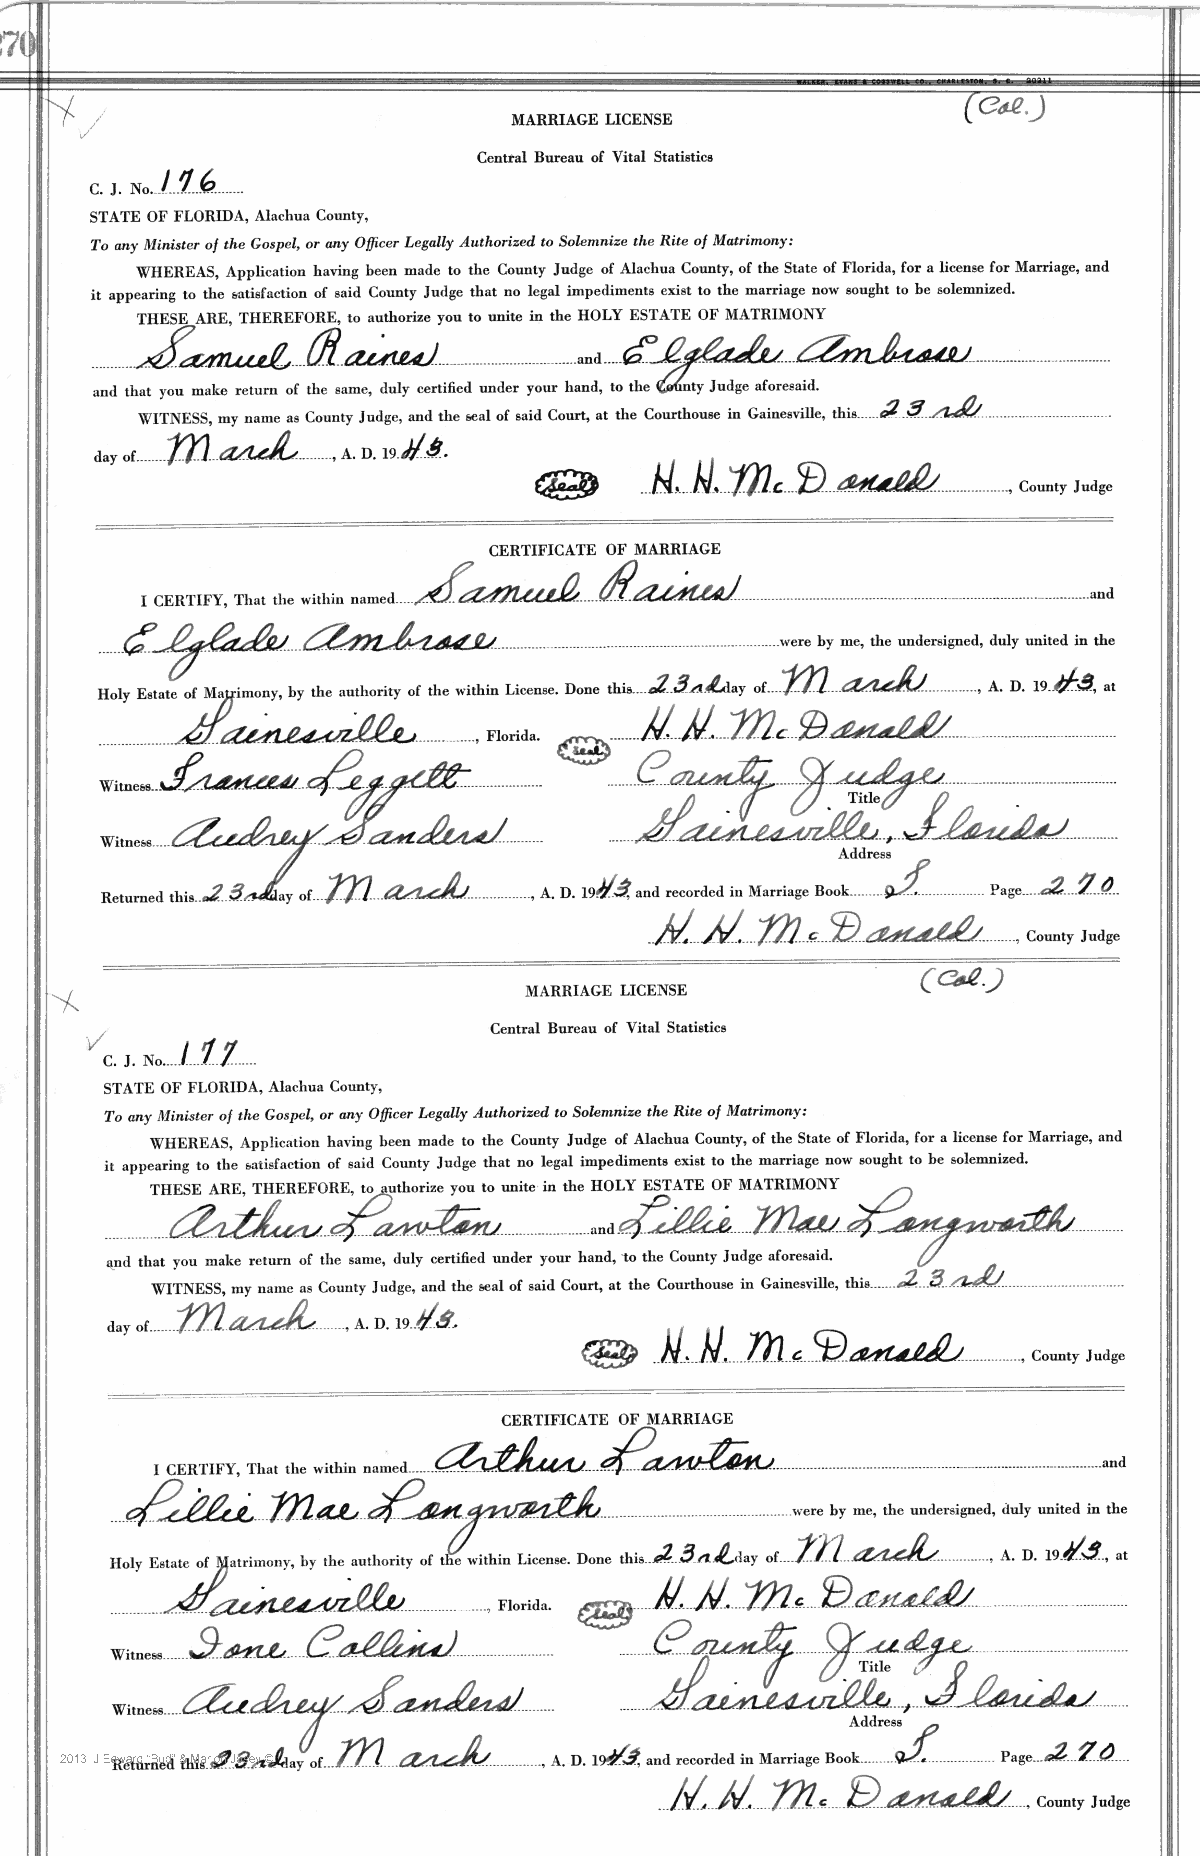 270
WALKER, EVANS & COGSWELL CO., CHARLESTON, S. C. 20211
(Col.)
MARRIAGE LICENSE
Central Bureau of Vital Statistics
C. J. No. 176
STATE OF FLORIDA, Alachua County,
To any Minister of the Gospel, or any Officer Legally Authorized to Solemnize the Rite of Matrimony:
WHEREAS, Application having been made to the County Judge of Alachua County, of the State of Florida, for a license for Marriage, and
it appearing to the satisfaction of said County Judge that no legal impediments exist to the marriage now sought to be solemnized.
THESE ARE, THEREFORE, to authorize you to unite in the HOLY ESTATE OF MATRIMONY
Samuel Raines and Elglade Ambrose
and that you make return of the same, duly certified under your hand, to the County Judge aforesaid.
WITNESS, my name as County Judge, and the seal of said Court, at the Courthouse in Gainesville, this 23rd
day of March, A. D. 1943.
Seal H. H. McDonald, County Judge
CERTIFICATE OF MARRIAGE
I CERTIFY, That the within named Samuel Raines and
Elglade Ambrose were by me, the undersigned, duly united in the
Holy Estate of Matrimony, by the authority of the within License. Done this 23rd day of March, A. D. 1943, at
Gainesville, Florida. Seal H. H. McDonald
Witness Frances Leggett County Judge
Title
Witness Audrey Sanders Gainesville, Florida
Address
Returned this 23rd day of March, A. D. 1943, and recorded in Marriage Book Page 270
H. H. McDonald, County Judge
(Col.)
MARRIAGE LICENSE
Central Bureau of Vital Statistics
C. J. No. 177
STATE OF FLORIDA, Alachua County,
To any Minister of the Gospel, or any Officer Legally Authorized to Solemnize the Rite of Matrimony:
WHEREAS, Application having been made to the County Judge of Alachua County, of the State of Florida, for a license for Marriage, and
it appearing to the satisfaction of said County Judge that no legal impediments exist to the marriage now sought to be solemnized.
THESE ARE, THEREFORE, to authorize you to unite in the HOLY ESTATE OF MATRIMONY
Arthur Lawton and Lillie Mae Longworth
and that you make return of the same, duly certified under your hand, to the County Judge aforesaid.
WITNESS, my name as County Judge, and the seal of said Court, at the Courthouse in Gainesville, this 23rd
day of March, A. D. 1943.
Seal H. H. McDonald, County Judge
CERTIFICATE OF MARRIAGE
I CERTIFY, That the within named Arthur Lawton and
Lillie Mae Longworth were by me, the undersigned, duly united in the
Holy Estate of Matrimony, by the authority of the within License. Done this 23rd day of March, A. D. 1943, at
Gainesville, Florida. Seal H. H. McDonald
Witness Ione Collins County Judge
Title
Witness Audrey Sanders Gainesville, Florida
Address
2013 J
Returned this 23rd day of March, A. D. 1943, and recorded in Marriage Book Page 270
H. H. McDonald, County Judge